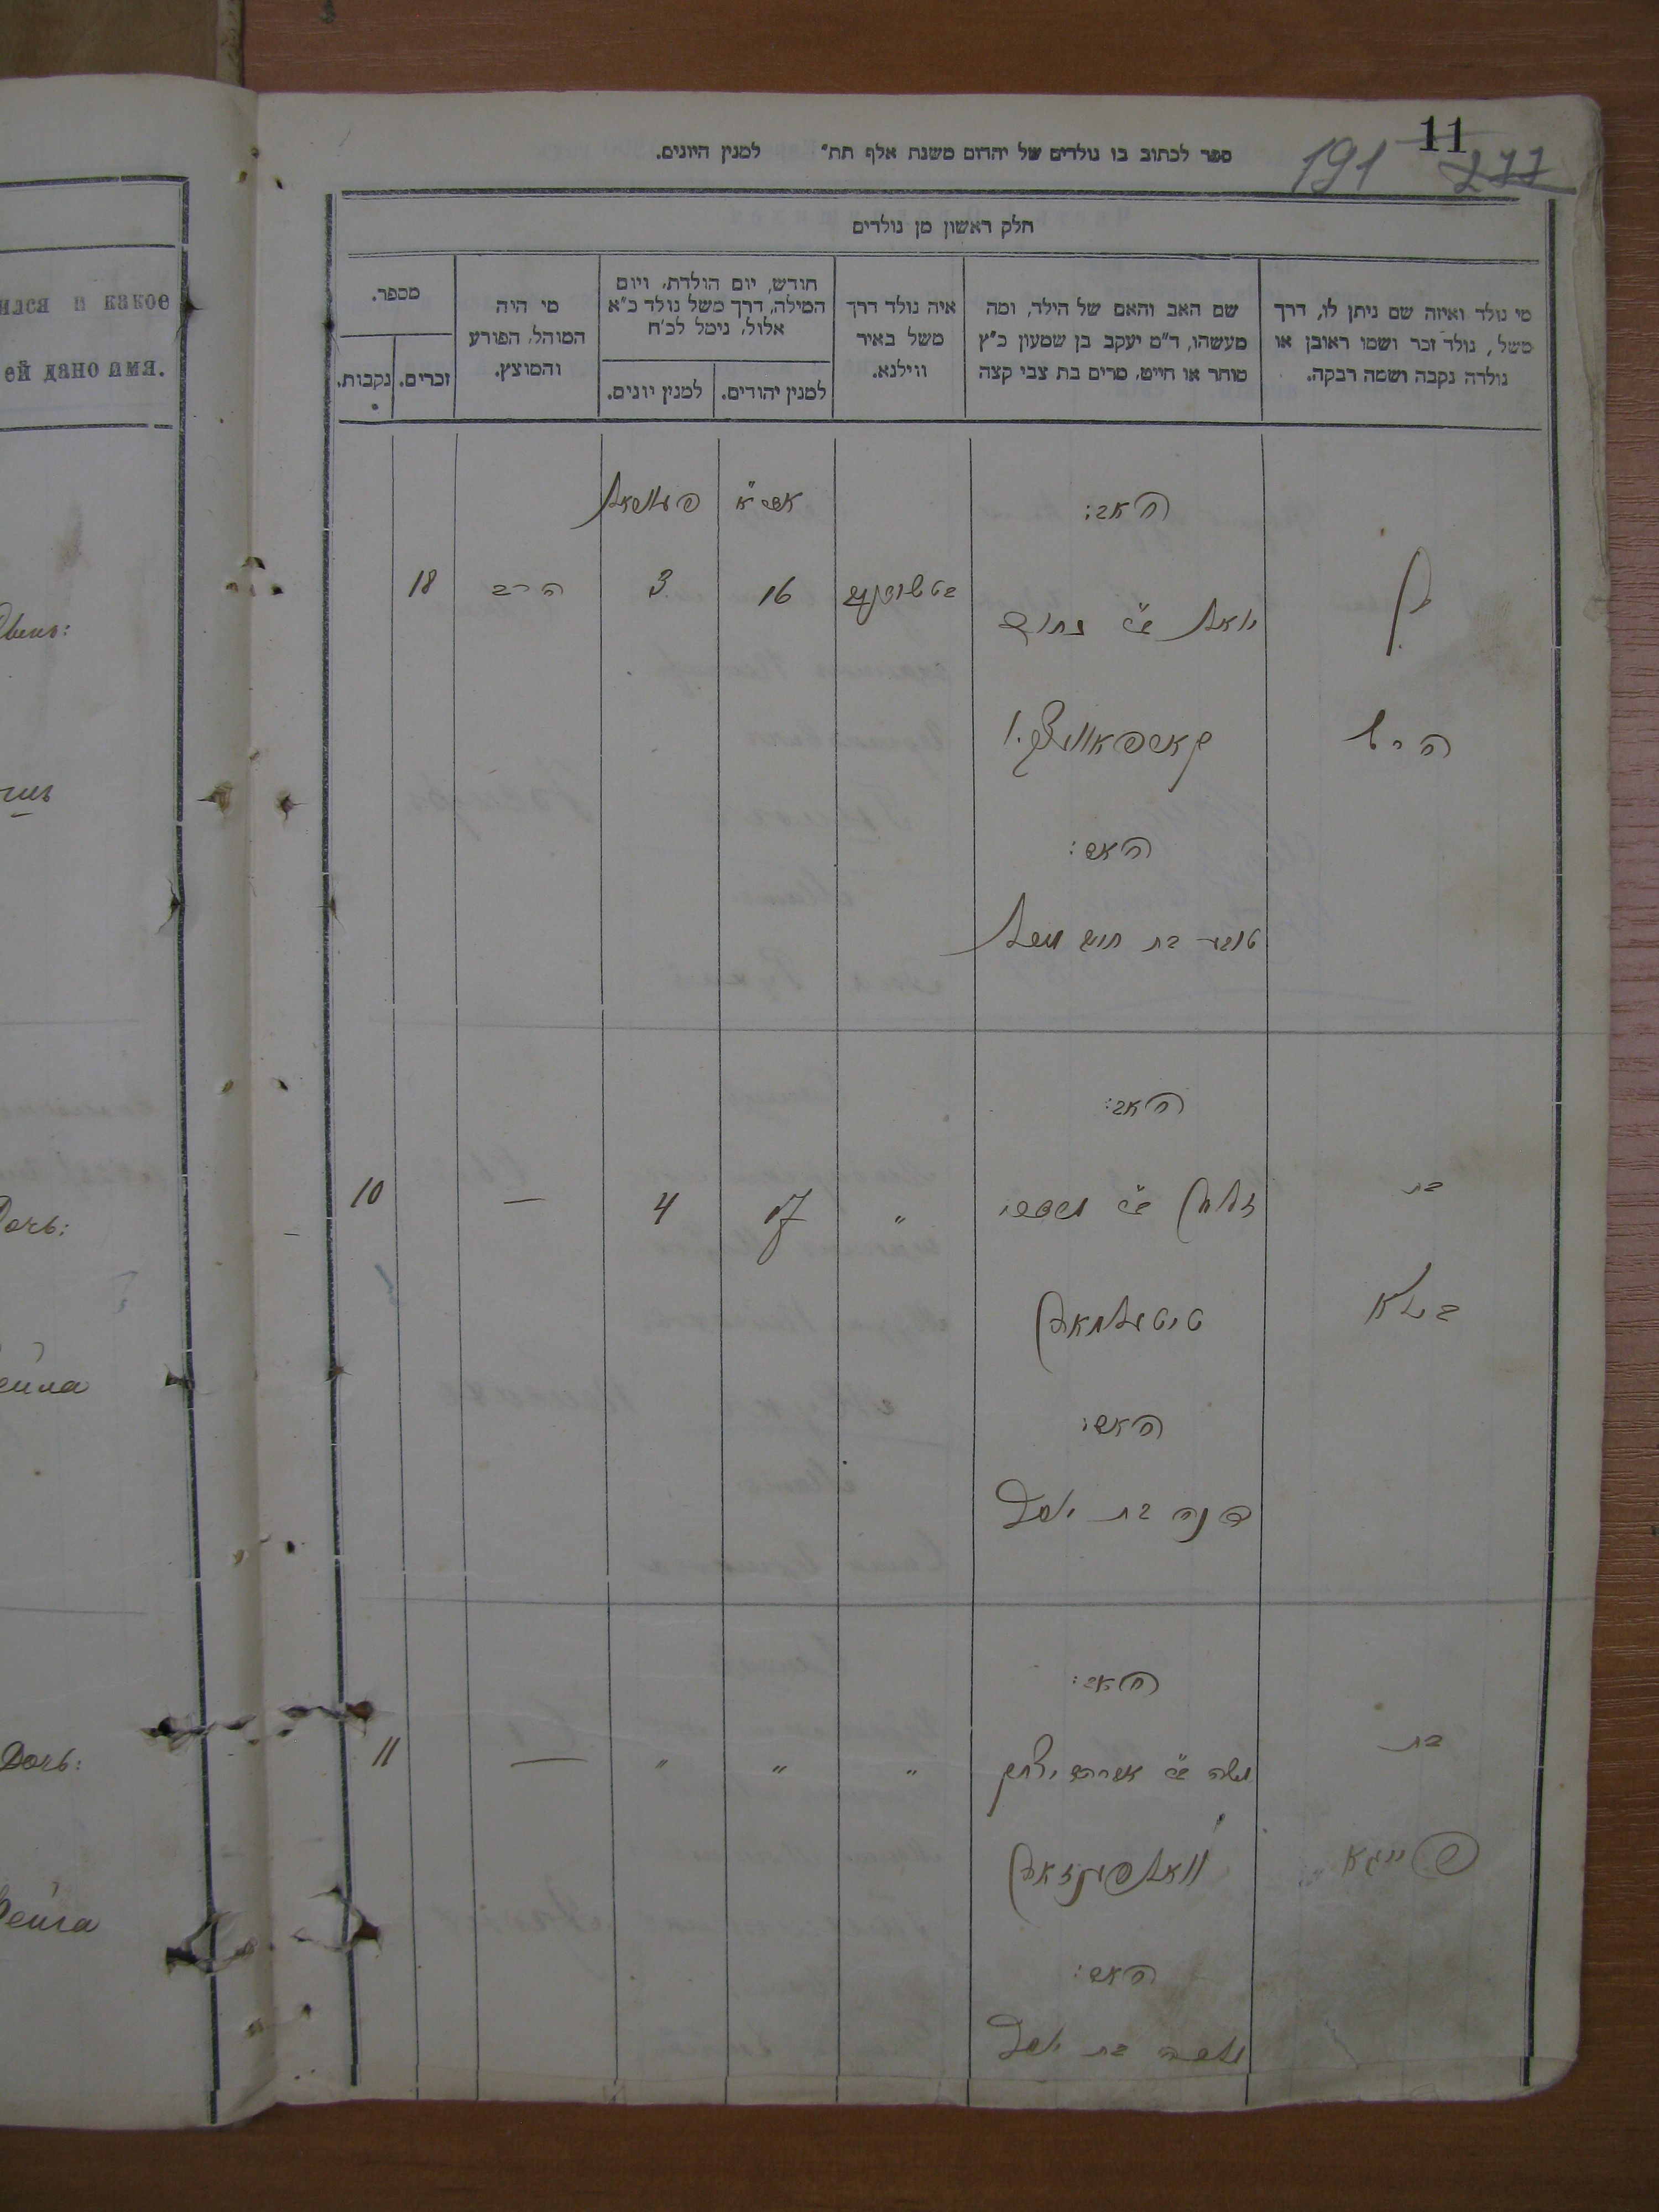 11
191 277
ספר לכתוב בו נולדים של יהדום משנת אלף תת״ למנין היונים.
חלק ראשון מן נולדים
מי נולד ואיזה שם ניתן לו, דרך משל, נולד זכר ושמו ראובן או נולדה נקבה ושמה רבקה.
שם האב והאם של הילד, ומה מעשהו, ד״מ יעקב בן שמעון כ״ץ סוחר או חייט, מרים בת צבי קצה
איה נולד דרך משל באיר ווילנא.
חודש, יום הולדת, ויום המילה, דרך משל נולד כ״א אלול, נימל לכ״ח
למנין יהודים.
למנין יונים.
מי היה המוהל, הפורע והמוצץ.
מספר.
זכרים.
נקבות.
האב:
בן
16
3
הרב
18
יואל ב״ר נחום
הירש
האם:
טובה בת חיים
האב:
בת
״
17
4
—
10
זלמן ב״ר
ביילא
טיטעלמאן
האם:
דינה בת יוסף
האב:
בת
משה ב״ר אברהם יצחק
״
״
״
—
11
פייגא
וואלפינזאהן
האם:
בת יוסף
ился и какое
ей дано имя.
Дочь:
Дочь:
Фейга